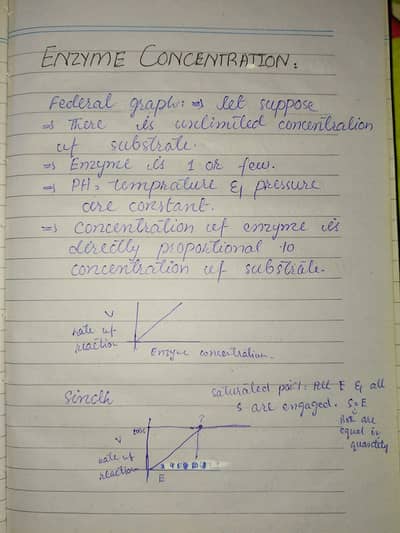 ENZYME CONCENTRATION:
Federal graph: ⇒ let suppose
⇒ There is unlimited concentration
of substrate.
⇒ Enzyme is 1 or few.
⇒ PH, temprature & pressure
are constant.
⇒ concentration of enzyme is
directly proportional to
concentration of substrate.
V
rate of
reaction
Enzyme concentration.
Sindh
saturated point: All E & all
S are engaged. S=E
are
equal in
quantity
V
rate of
reaction
E